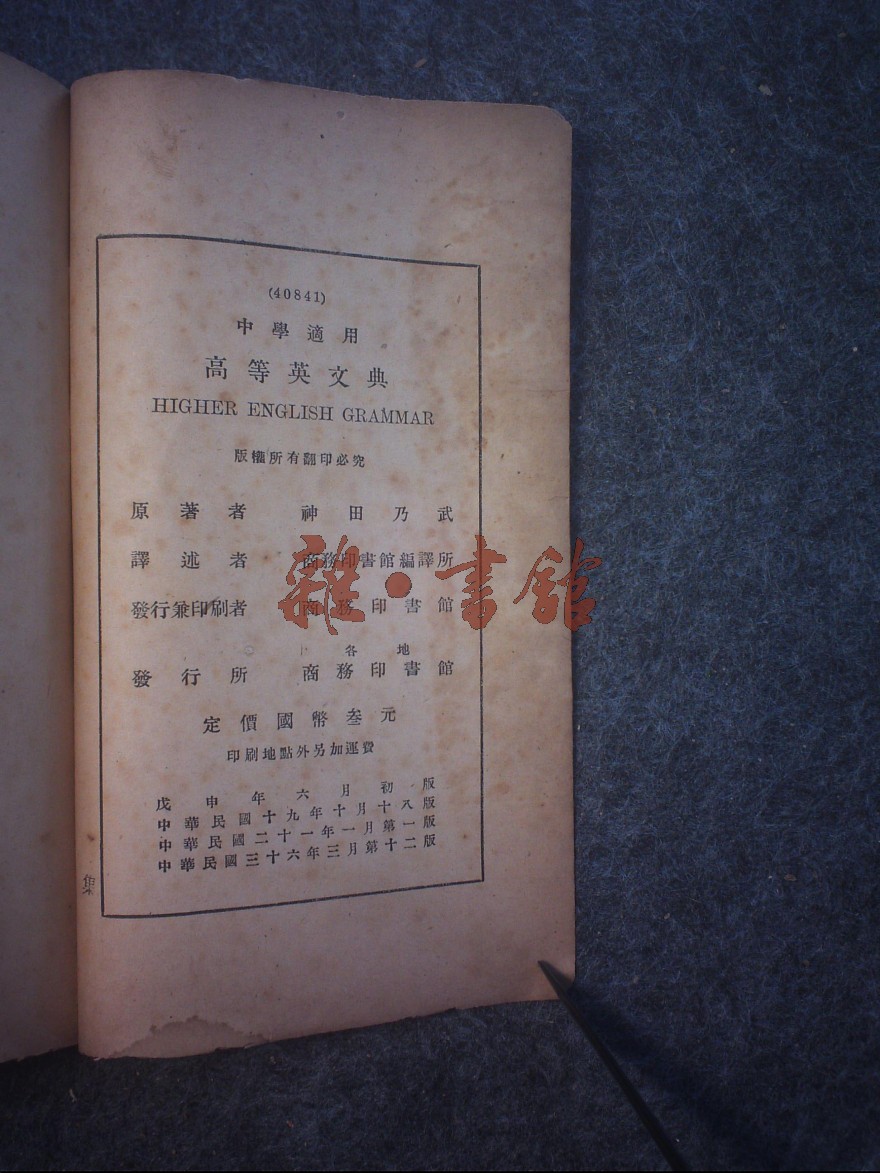 (40841)
中學適用
高等英文典
HIGHER ENGLISH GRAMMAR
版權所有翻印必究
原著者 神田乃武
譯述者 商務印書館編譯所
發行兼印刷者 商務印書館
各地
發行所 商務印書館
定價國幣叁元
印刷地點外另加運費
戊申年六月初版
中華民國十九年十月十八版
中華民國二十一年一月第一版
中華民國三十六年三月第十二版
集
雜·書館